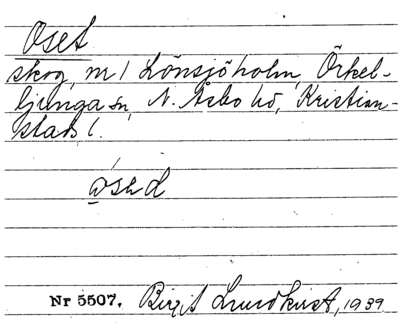 Oset
skog, m/ Lönsjöholm, Örkel-
ljunga sn, N. Åsbo hd, Kristian-
stads l.
åsed
Nr 5507. Birgit Lundkvist, 1939